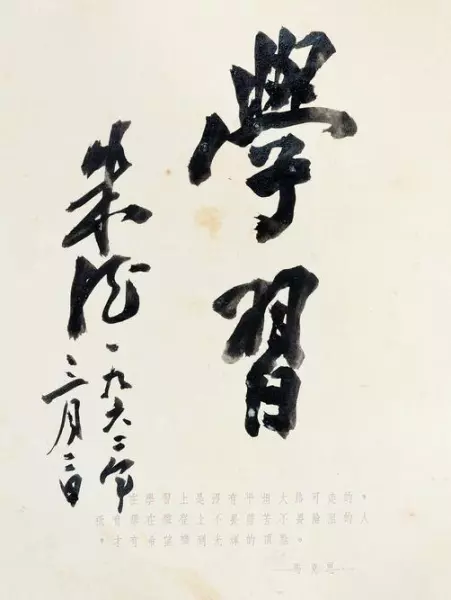 學習
朱德
一九六二年
三月二日
在學習上是沒有平坦大路可走的，
有在上不畏勞苦不畏險阻的人
，才有希望到光輝的頂點。
——馬克思——